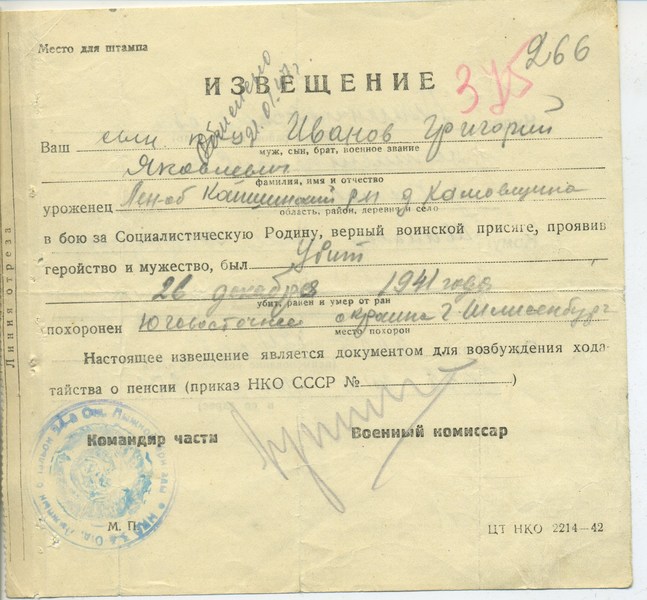 Место для штампа
266
ИЗВЕЩЕНИЕ
375
21.01.47г
Ваш сын Иванов Григорий
муж, сын, брат, военное звание
Яковлевич
фамилия, имя и отчество
уроженец Лен-об р-н д. Хамовщина
область, район, деревня, село
в бою за Социалистическую Родину, верный воинской присяге, проявив
геройство и мужество, был Убит
26 декабря 1941 года
убит, ранен и умер от ран
похоронен Юговосточнее окраина г. Шлиссенбург
место похорон
Настоящее извещение является документом для возбуждения хода-
тайства о пенсии (приказ НКО СССР № )
Командир части Военный комиссар
М. П.
ЦТ НКО 2214—42
Линия отреза